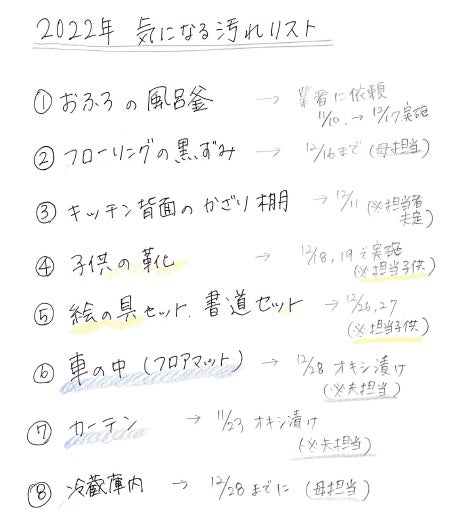 2022年 気になる汚れリスト
① おふろの風呂釜 → 業者に依頼
11/10 → 12/17実施
② フローリングの黒ずみ → 12/16まで (母担当)
③ キッチン背面のかざり棚 → 12/11 (※担当者
未定)
④ 子供の靴 → 12/18,19で実施
(※担当子供)
⑤ 絵の具セット、書道セット → 12/26,27
(※担当子供)
⑥ 車の中 (フロアマット) → 12/28 オキシ漬け
(※夫担当)
⑦ カーテン → 11/23 オキシ漬け
(※夫担当)
⑧ 冷蔵庫内 → 12/28までに (母担当)